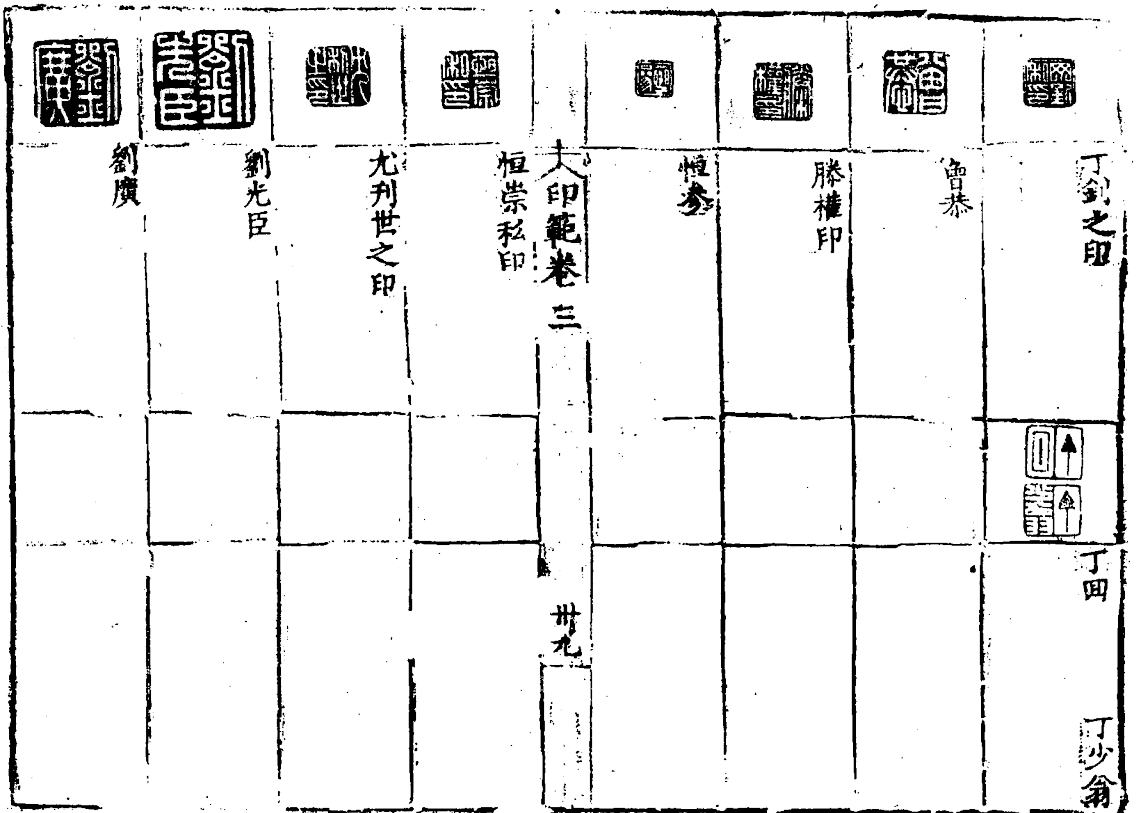 丁釗之印
丁囬
丁少翁
魯恭
滕權印
恒參
印範卷三
卅九
恒崇私印
尤刊世之印
劉光臣
劉廣